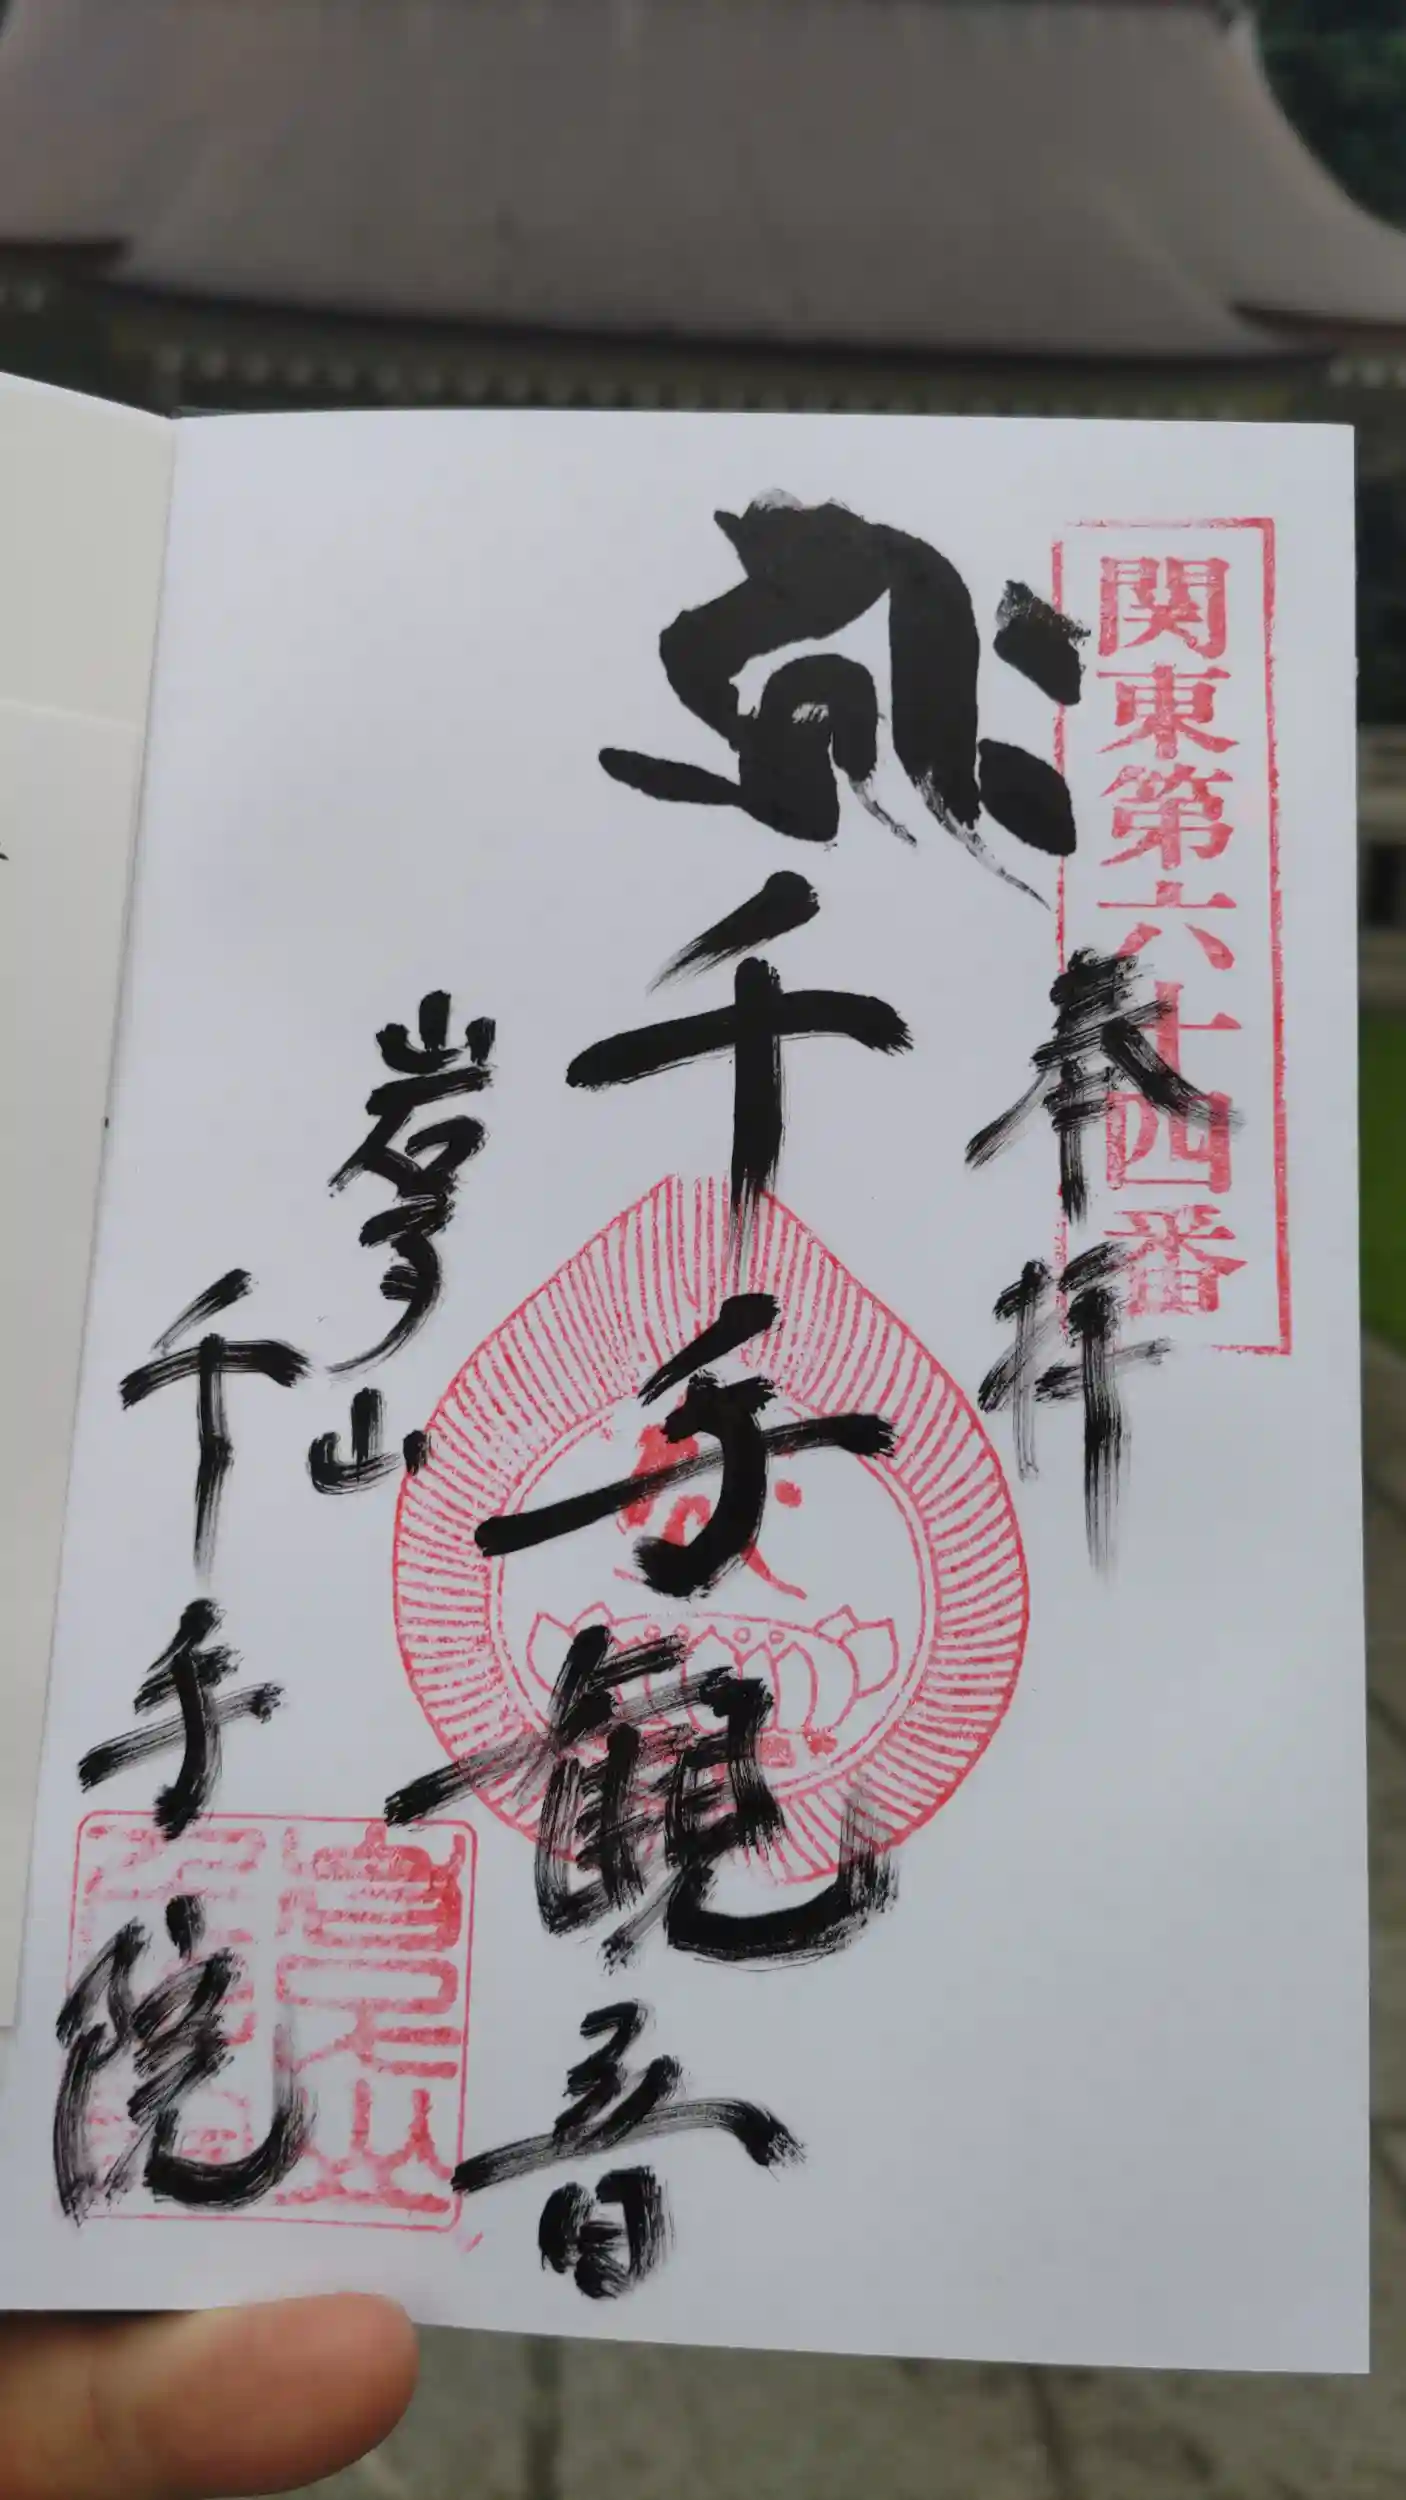 関東第六十四番
奉拝
千手観音
千手院